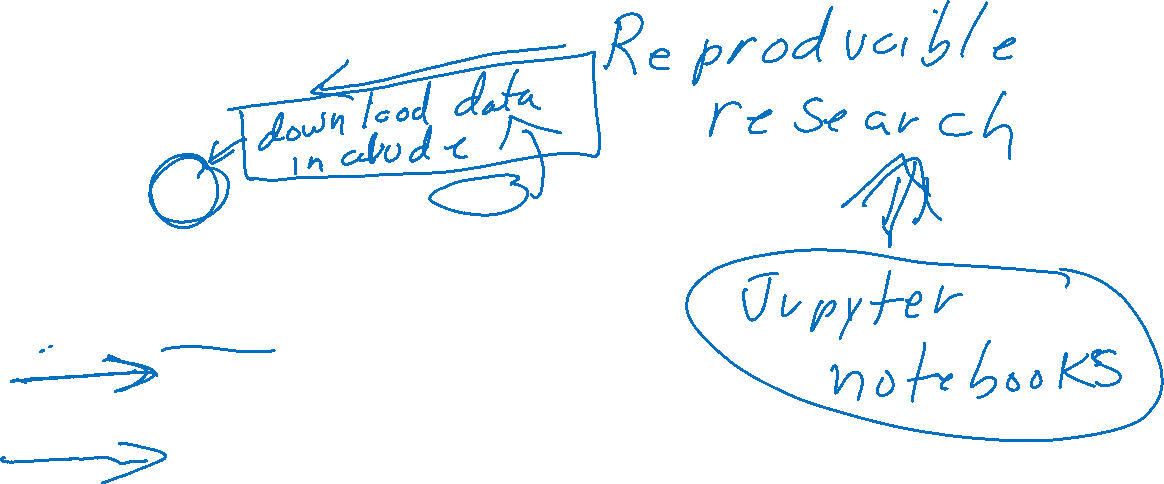 Reproducible
research
download data
in
Jupyter
notebooks